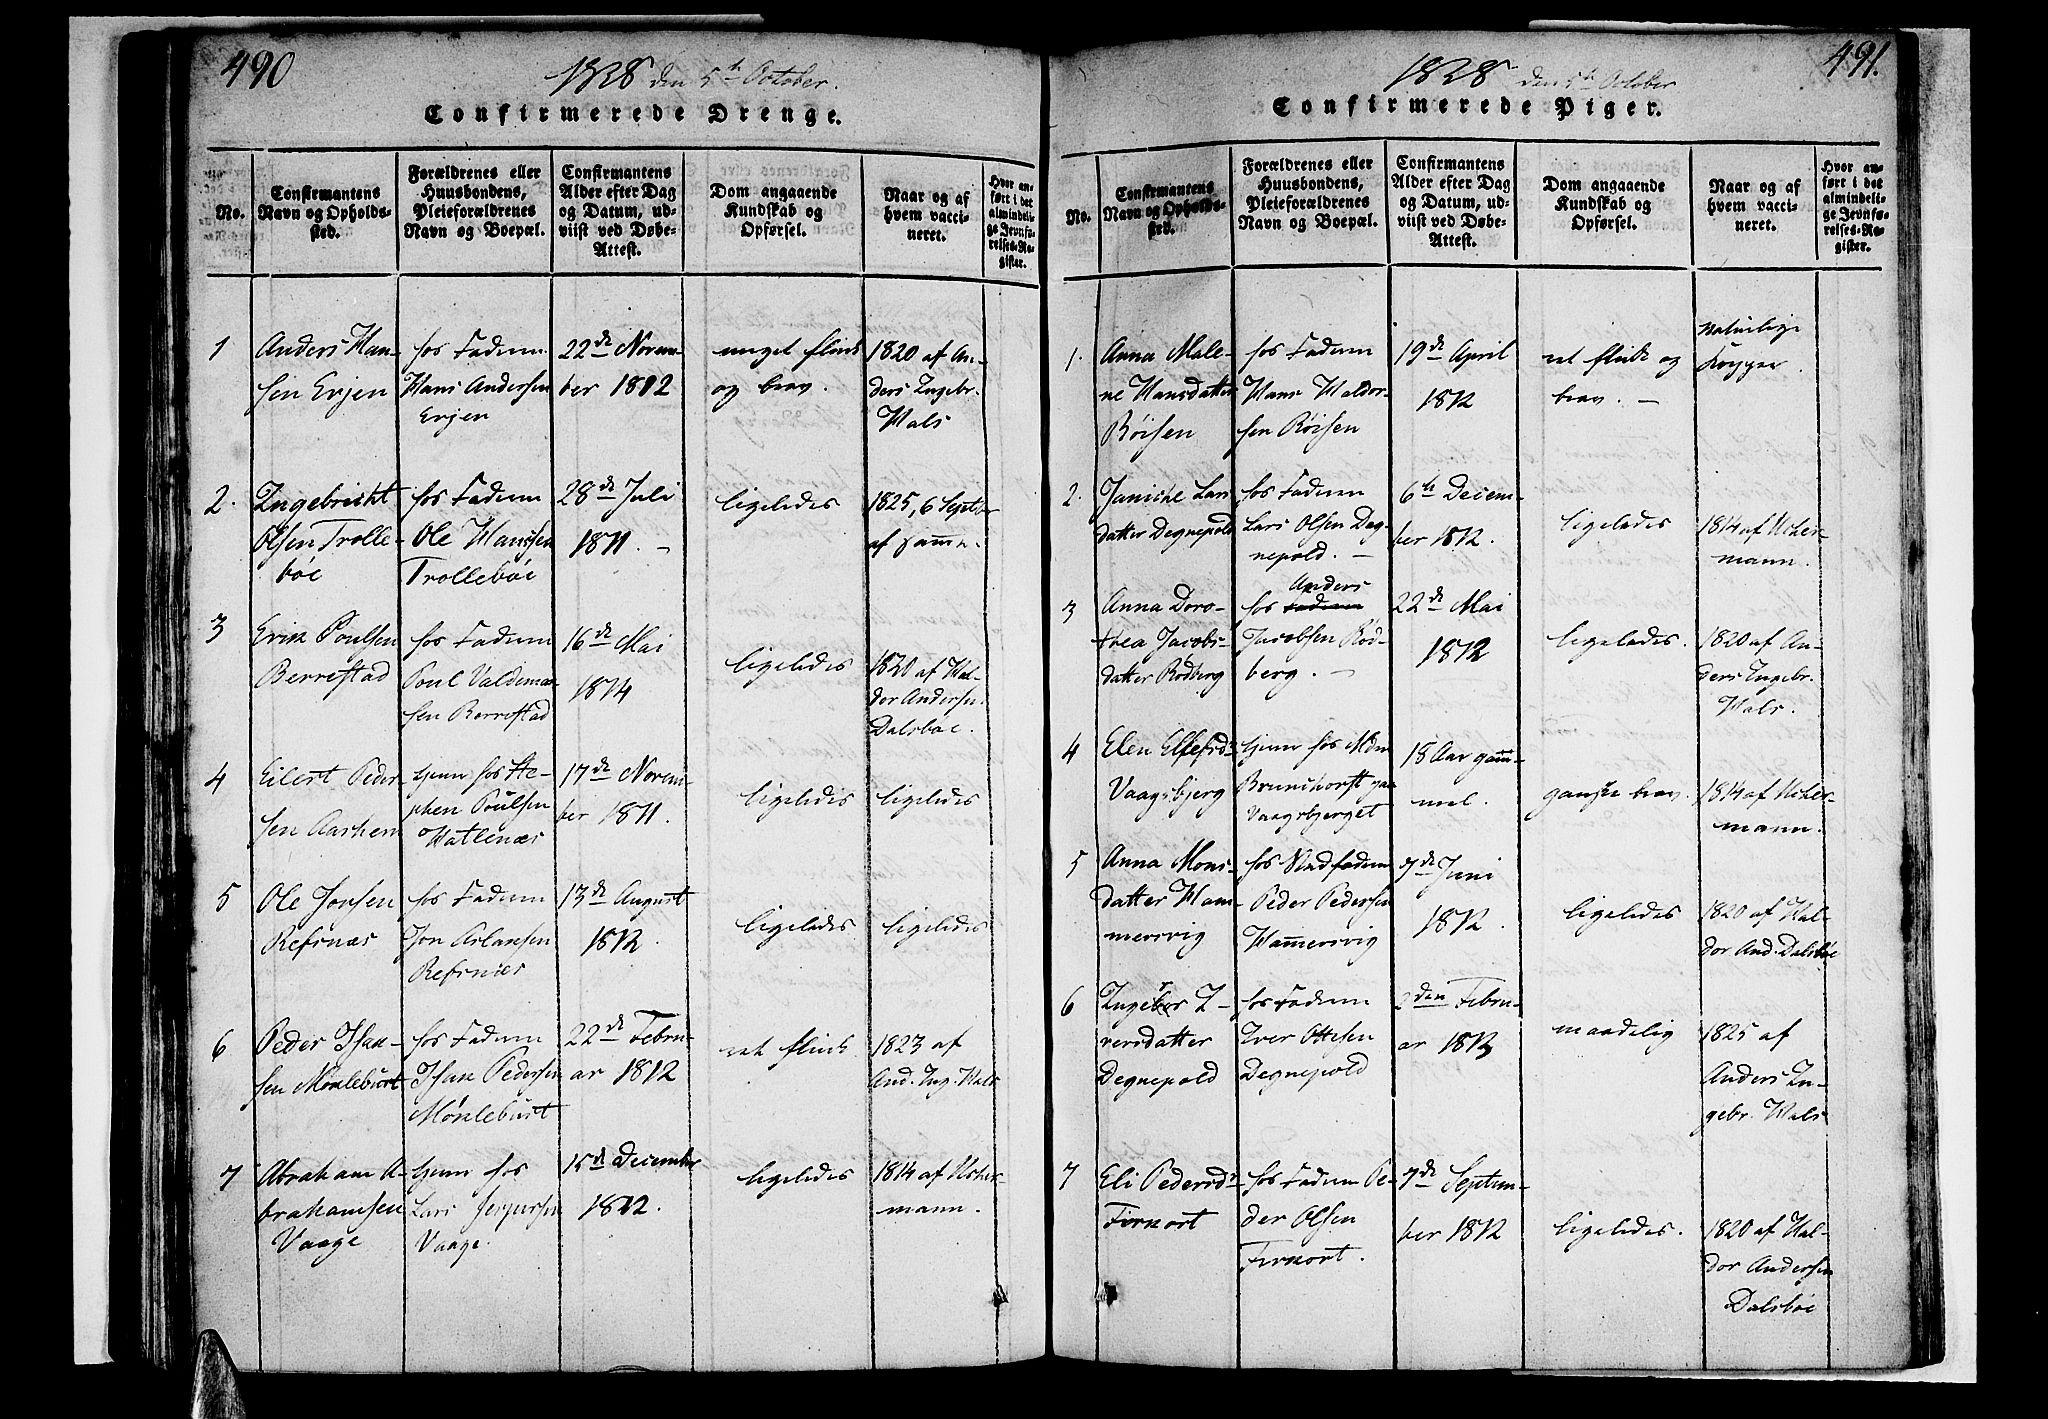 490
1828 den 5th October.
Confirmerede Drenge.
No.
Confirmantens
Navn og Opholds-
sted.
Forældrenes eller
Huusbondens,
Pleieforældrenes
Navn og Boepæl.
Confirmantens
Alder efter Dag
og Datum, ud-
viist ved Døbe-
Attest.
Dom angaaende
Kundskab og
Opførsel.
Naar og af
hvem vacci-
neret.
Hvor an-
ført i det
almindeli-
ge Jevnfø-
relses-Re-
gister.
1
Anders Han-
sen Erjen
hos Faderen
Hans Andersen
Erjen
22de Novem-
ber 1812
meget flink
og brav.
1820 af An-
ders Ingebr.
Hals
2.
Ingebricht
Olsen Trolle-
böe
hos Faderen
Ole Hanssen
Trolleböe
28de Juli
1811. -
ligeledes
1825, 6 Septbr
af samme.
3
Erik Poulsen
Berrestad
hos Faderen
Poul Valdemar-
sen Berrestad
16de Mai
1814
ligeledes
1820 af Hal-
dor Andersen
Dalsböe.
4
Eilert Peder-
sen Aarhen
tjener hos Ste-
phen Poulsen
Hatlenæs
17de Novem-
ber 1811.
ligeledes
ligeledes
5
Ole Jonsen
Refsnæs
hos Faderen
Jon Arlansen
Refsnæs
13de August
1812.
ligeledes
ligeledes
6
Peder Isak-
sen Mönlebust
hos Faderen
Isak Pedersen
Mönlebust
22de Febru-
ar 1812
ret flink
1823 af
And. Ing. Hals
7
Abraham A-
brahamsen
Vaage
tjener hos
Lars Jespersen
Vaage.
15de December
1812.
ligeledes
1814 af Ucher-
mann.
491.
1828 den 5th October
Confirmerede Piger.
No.
Confirmantens
Navn og Opholds-
sted.
Forældrenes eller
Huusbondens,
Pleieforældrenes
Navn og Boepæl.
Confirmantens
Alder efter Dag
og Datum, ud-
viist ved Døbe-
Attest.
Dom angaaende
Kundskab og
Opførsel.
Naar og af
hvem vacci-
neret.
Hvor an-
ført i det
almindeli-
ge Jevnfø-
relses-Re-
gister.
1.
Anna Male-
ne Hansdatter
Röisen
hos Faderen
Hans Haldor-
sen Röisen
19de April
1812
ret flink og
brav. -
naturlige
Kopper.
2.
Janiche Lars
datter Degnepold
hos Faderen
Lars Olsen Deg-
nepold. -
6te Decem-
ber 1812.
ligeledes
1814 af Ucher-
mann.
3
Anna Doro-
thea Jacobs-
datter Rödberg
Anders
hos Faderen
Jacobsen Röd-
berg. -
22de Mai
1812
ligeledes.
1820 af An-
ders Ingebr.
Hals.
4
Elen Ellefsd
Vaagsbjerg
tjener hos Mdm
Brunchorst paa
Vaagsbjerget
18 Aar gam-
mel.
ganske brav.
1814 af Ucher-
mann.
5
Anna Mons-
datter Ham-
mersvig
hos Stedfaderen
Peder Pedersen
Hammersvig
7de Juni
1812.
ligeledes
1820 af Hal-
dor And. Dalsböe
6
Ingebor I-
versdatter
Degnepold
hos Faderen
Iver Ottesen
Degnepold
2den Febru-
ar 1813
maadelig
1825 af
Anders In-
gebr. Hals
7
Eli Pedersd
Firnort
hos Faderen Pe-
der Olsen
Firnort.
7de Septem-
ber 1812
ligeledes.
1820 af Hal-
dor Andersen
Dalsböe